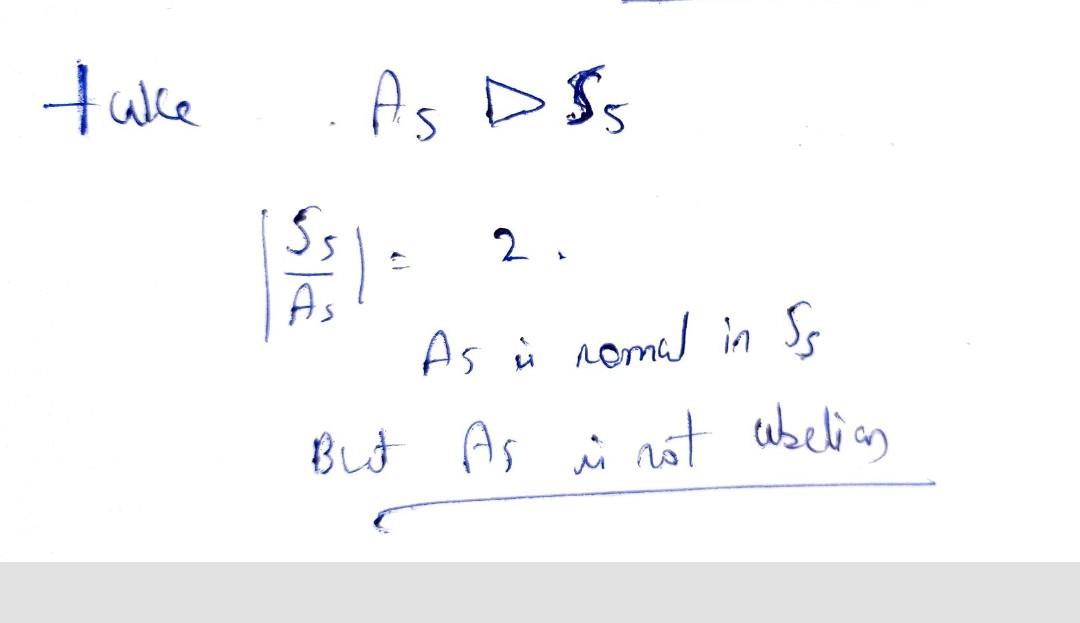 take A5 ▷ S5
|S5/A5| = 2.
A5 is normal in S5
But A5 is not abelian